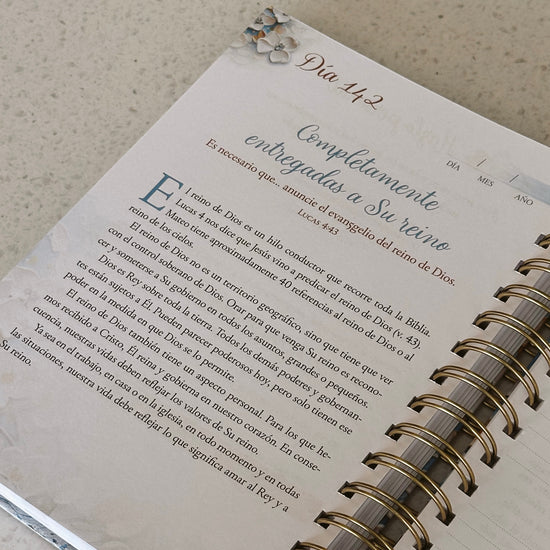 Día 142
DÍA / MES / AÑO
Completamente
entregadas a Su reino
Es necesario que... anuncie el evansgelio del reino de Dios.
Lucas 4:43
El reino de Dios es un hilo conductor que recorre toda la Biblia.
Lucas 4 nos dice que Jesús vino a predicar el reino de Dios (v. 43).
Mateo tiene aproximadamente 40 referencias al reino de Dios o al
reino de los cielos.
El reino de Dios no es un territorio geográfico, sino que tiene que ver
con el control soberano de Dios. Orar para que venga Su reino es recono-
cer y someterse a Su gobierno en todos los asuntos, grandes o pequeños.
Dios es Rey sobre toda la tierra. Todos los demás poderes y gobernan-
tes están sujetos a Él. Pueden parecer poderosos hoy, pero solo tienen ese
poder en la medida en que Dios se lo permite.
El reino de Dios también tiene un aspecto personal. Para los que he-
mos recibido a Cristo, Él reina y gobierna en nuestro corazón. En conse-
cuencia, nuestras vidas deben reflejar los valores de Su reino.
Ya sea en el trabajo, en casa o en la iglesia, en todo momento y en todas
las situaciones, nuestra vida debe reflejar lo que significa amar al Rey y a
Su reino.